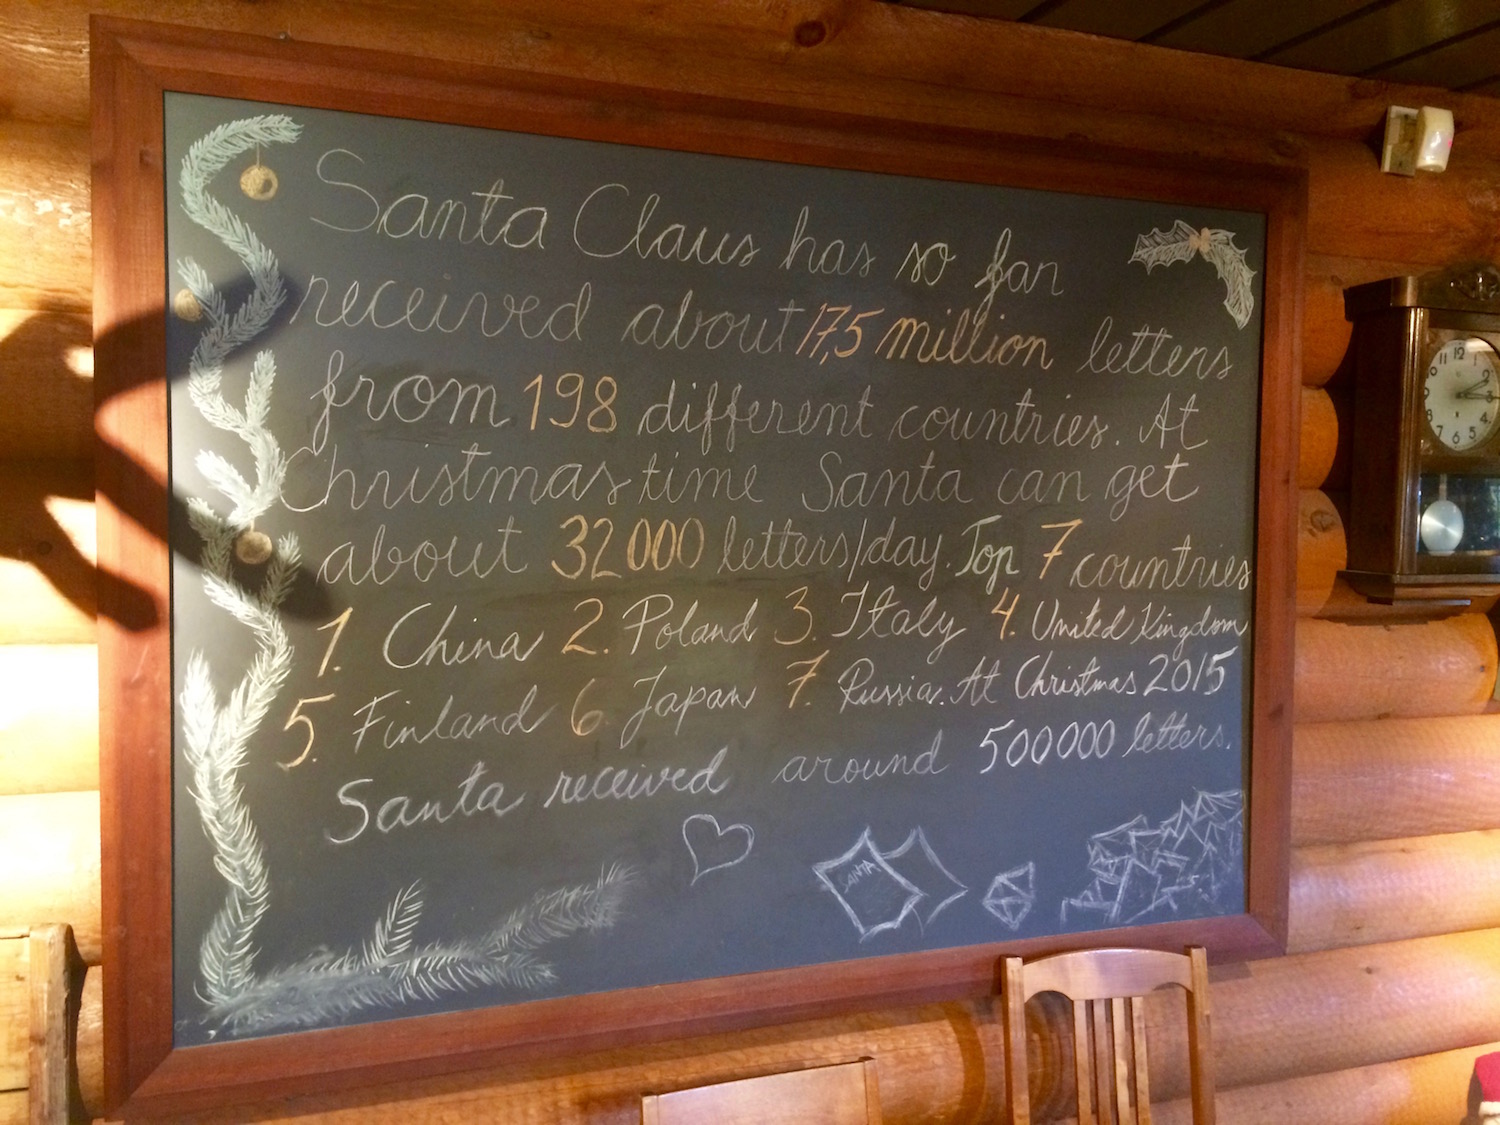 Santa Claus has so far
received about 17,5 million letters
from 198 different countries. At
Christmas time Santa can get
about 32 000 letters/day. Top 7 countries
1. China 2. Poland 3. Italy 4. United Kingdom
5. Finland 6. Japan 7. Russia. At Christmas 2015
Santa received around 500 000 letters.
SANTA